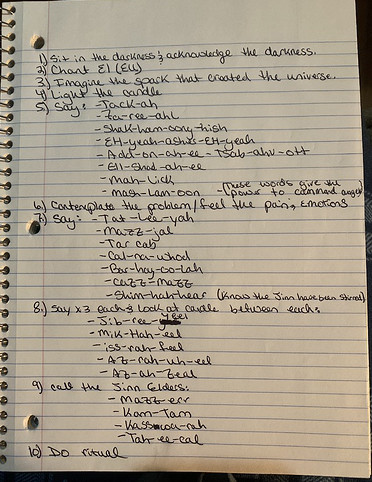 1) Sit in the darkness & acknowledge the darkness.
2) Chant El (Ell)
3) Imagine the spark that created the universe.
4) Light the candle
5) Say: - Jack-ah
- za-ree-ahl
- Shak-ham-oony-hish
- EH-yeah-asher-EH-yeah
- Add-on-ah-ee - Tsab-ahv-ott
- Ell-Shad-ah-ee
- Mah-Lick
- mash-Lam-oon - (These words give the
power to command angels)
6) Contemplate the problem/feel the pain, emotions
7) Say: - Tat-Lee-yah
- Mazz-jal
- Tar cab
- Cal-na-whod
- Bar-hay-oo-lah
- cazz-mazz
- Shim-hah-hear (Know the Jinn have been stirred)
8) Say x3 each & look at candle between each:
- Jib-ree-yeel
- Mik-Hah-eel
- iss-rah-feel
- AZ-rah-uh-eel
- Az-ah-zeal
9) call the Jinn Elders:
- Mazz-err
- Kam-Tam
- Kass-wa-rah
- Tah-ee-cal
10) Do ritual